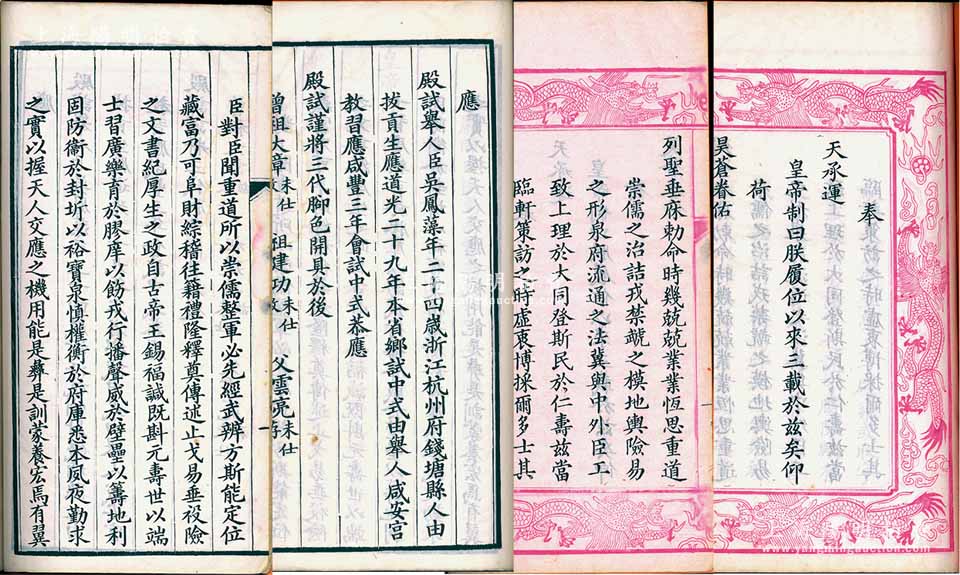 奉
天承運
皇帝制曰朕履位以來三載於兹矣仰
荷
昊蒼眷佑
列聖垂庥勅命時幾兢兢業業恆思重道
崇儒之治詰戎禁虣之模地輿險易
之形泉府流通之法冀與中外臣工
致上理於大同登斯民於仁壽兹當
臨軒策訪之時虛衷博採爾多士其
應
殿試舉人臣吳鳳藻年二十四歲浙江杭州府錢塘縣人由
拔貢生應道光二十九年本省鄉試中式由舉人咸安宮
教習應咸豐三年會試中式恭應
殿試謹將三代腳色開具於後
曾祖大章未仕 祖建功未仕 父雲亮未仕
臣對臣聞重道所以崇儒整軍必先經武辨方斯能定位
藏富乃可阜財綜稽往籍禮隆釋奠傳述止戈易垂設險
之文書紀厚生之政自古帝王錫福諴既斟元壽世以端
士習廣樂育於膠庠以飭戎行播聲威於壁壘以籌地利
固防衛於封圻以裕寶泉慎權衡於府庫悉本夙夜勤求
之實以握天人交應之機用能是彝是訓蒙養宏焉有翼
www.yangmingauction.com